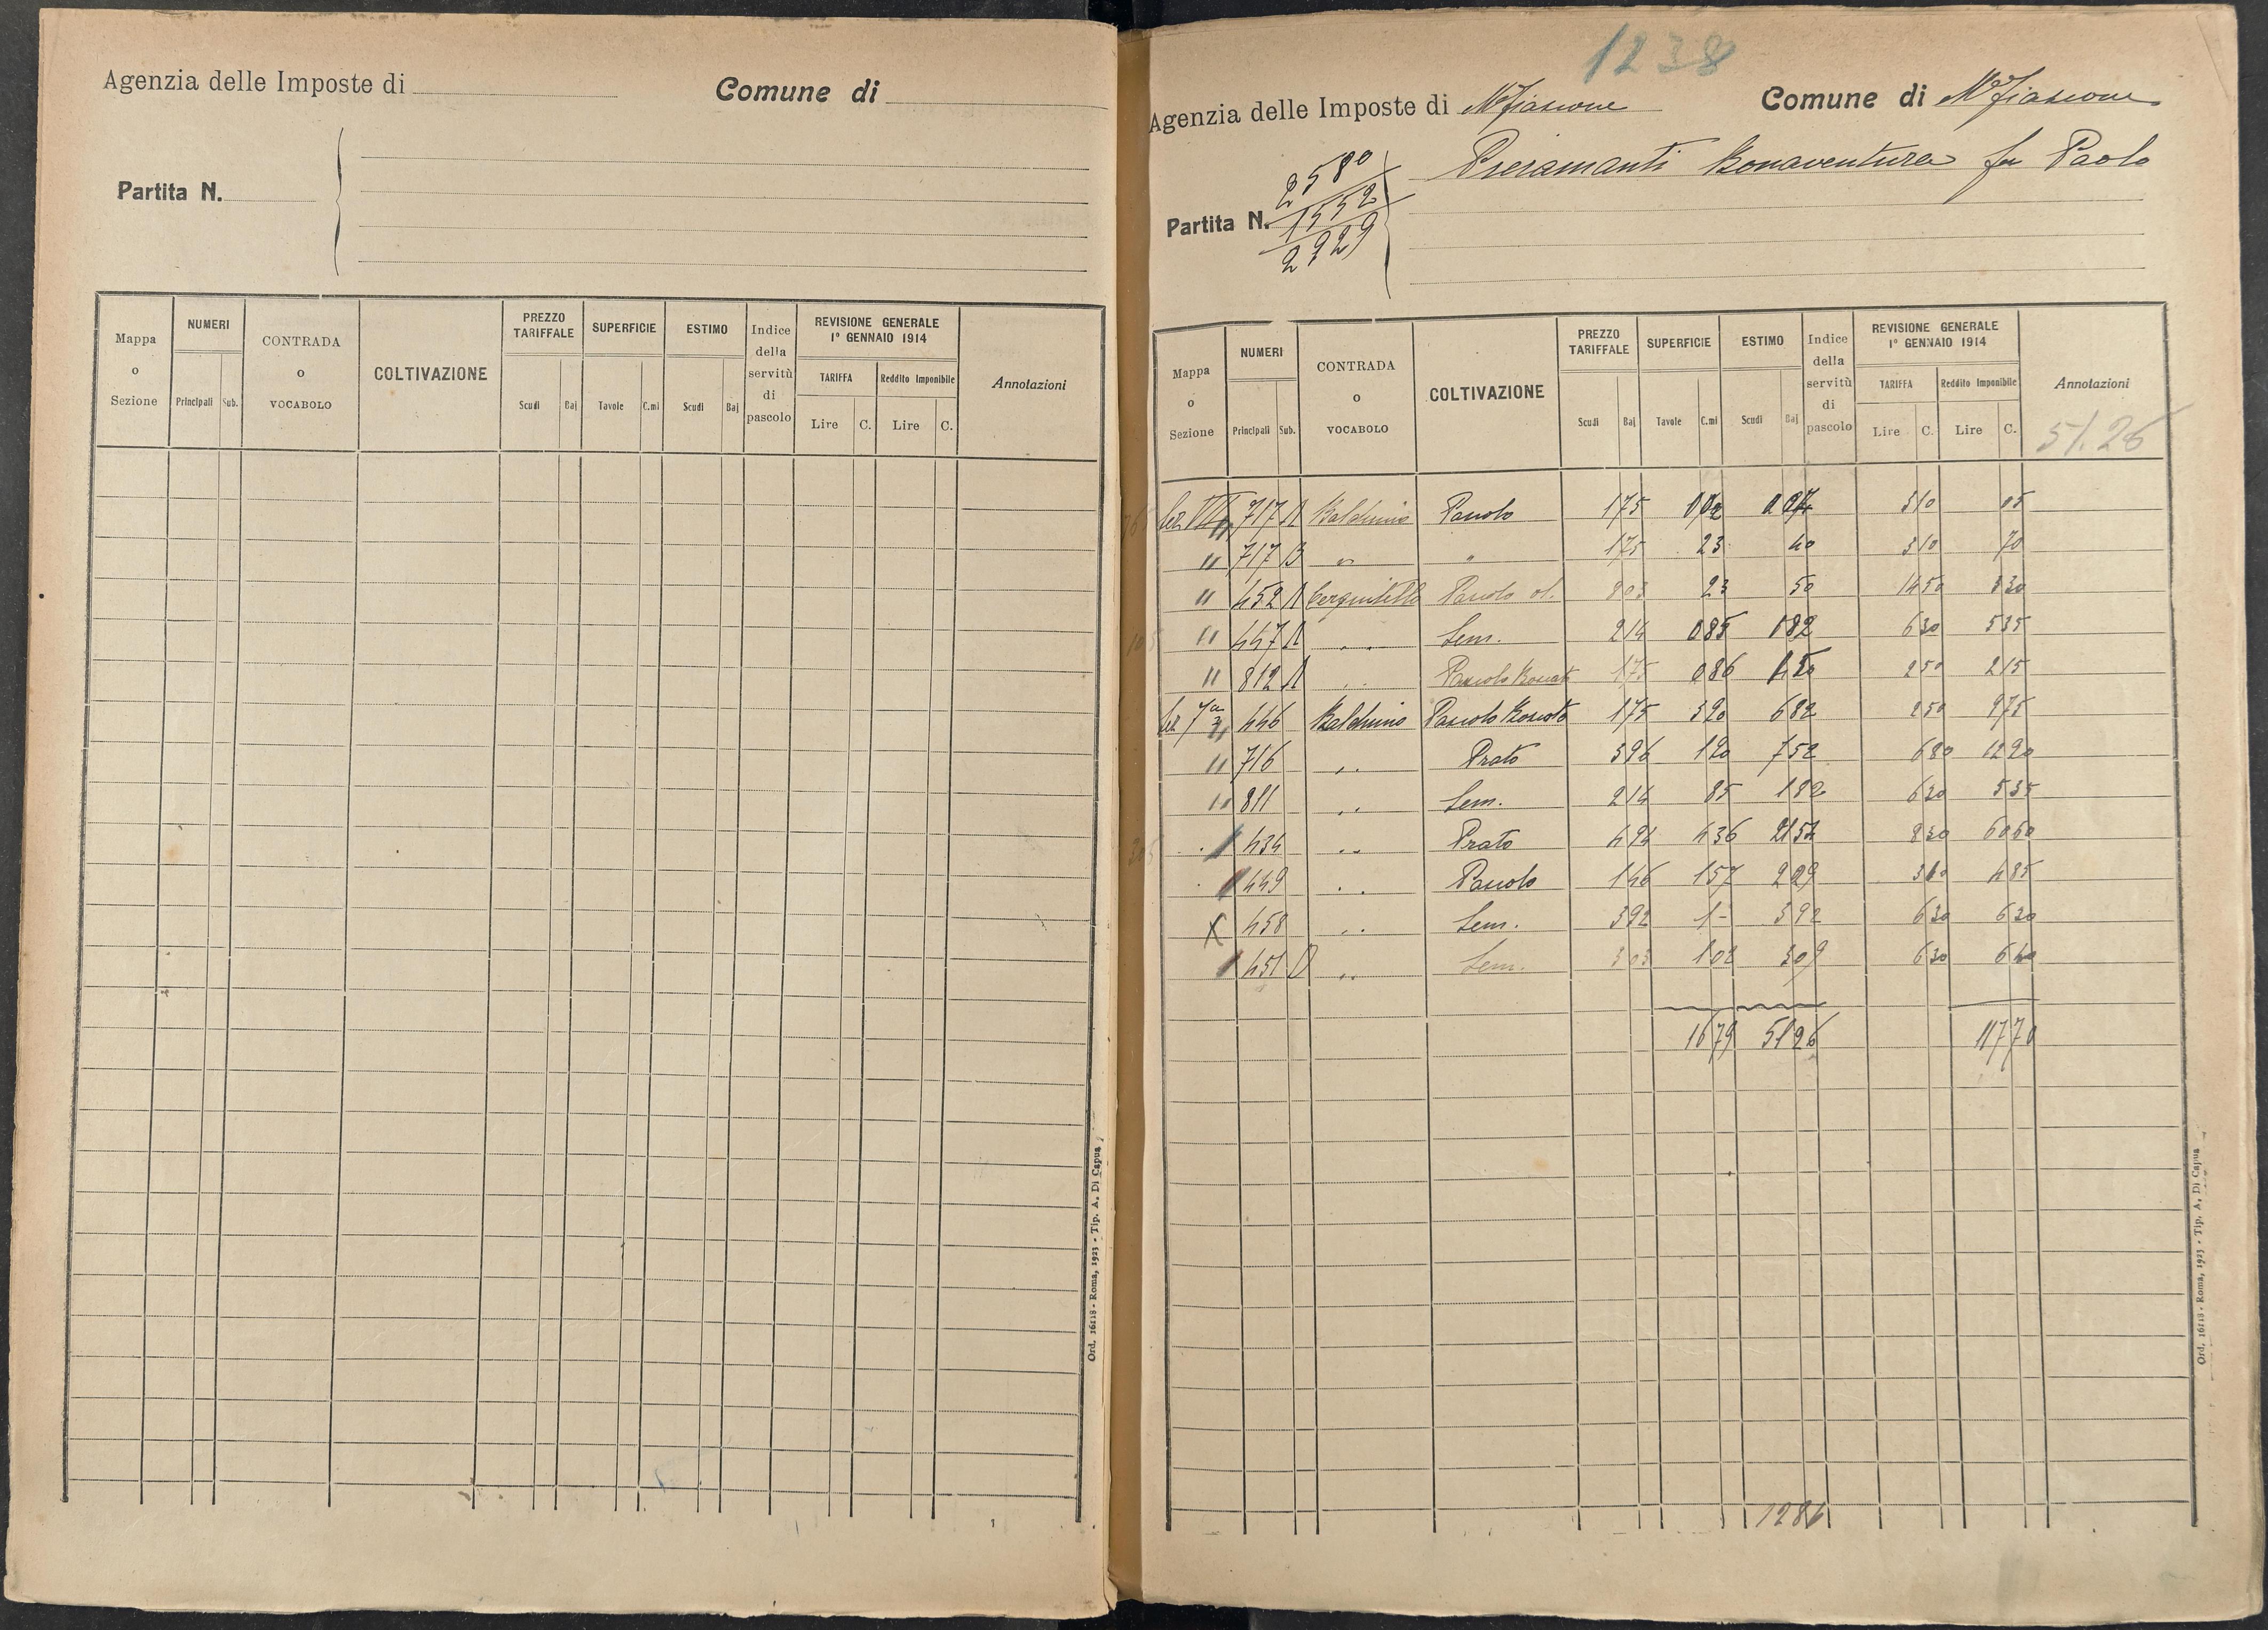 Agenzia delle Imposte di
Comune di
Partita N.
Mappa o Sezione
NUMERI
Principali Sub.
CONTRADA o VOCABOLO
COLTIVAZIONE
PREZZO TARIFFALE
Scudi Baj
SUPERFICIE
Tavole C.mi
ESTIMO
Scudi Baj
Indice della servitù di pascolo
REVISIONE GENERALE 1° GENNAIO 1914
TARIFFA
Lire C.
Reddito Imponibile
Lire C.
Annotazioni
Ord. 16118 - Roma, 1923 - Tip. A. Di Capua
1238
Agenzia delle Imposte di Mfiascone
Comune di Mfiascone
Partita N. 2580
1552
2929
Pieramanti Bonaventura fu Paolo
Mappa o Sezione
NUMERI
Principali Sub.
CONTRADA o VOCABOLO
COLTIVAZIONE
PREZZO TARIFFALE
Scudi Baj
SUPERFICIE
Tavole C.mi
ESTIMO
Scudi Baj
Indice della servitù di pascolo
REVISIONE GENERALE 1° GENNAIO 1914
TARIFFA
Lire C.
Reddito Imponibile
Lire C.
Annotazioni
51.26
717 A Pascolo 175 310 05
" 717 B " " 175 23 40 310 70
" 452 A Pascolo ol. 203 23 50 1450 330
" 447 A " Sem. 214 085 182 630 535
" 812 A " Pascolo 175 086 150 250 215
446 Pascolo 175 390 682 250 975
" 716 " Prato 396 190 752 680 1290
" 811 " Sem. 214 85 182 630 535
434 " Prato 494 436 2154 830
449 " Pascolo 146 157 229 310 485
X 458 " Sem. 392 1 - 392 630 630
451 " Sem. 303 102 309 630 640
1679 5126 11770
1286
Ord. 16118 - Roma, 1923 - Tip. A. Di Capua